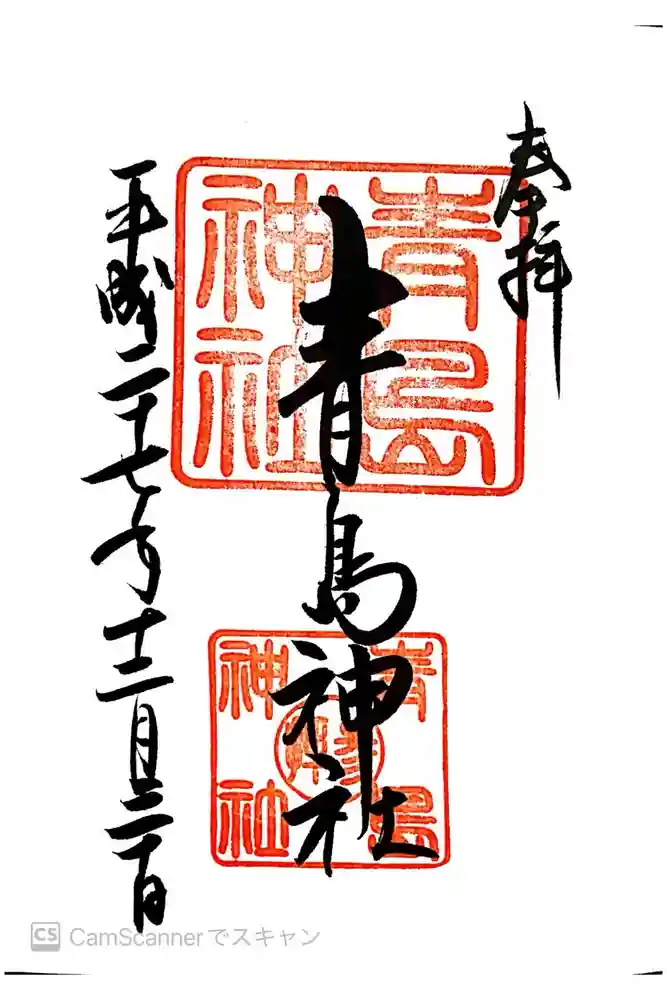 奉拝
青島
神社
青島神社
青島
参拝
神社
平成二十七年十二月日
CS CamScannerでスキャン